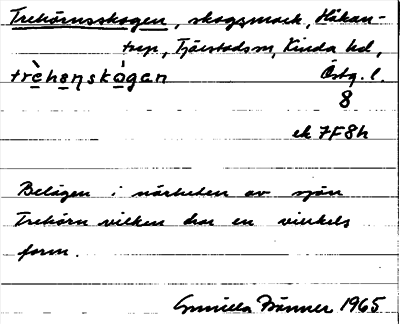 Trehörnsskogen, skogsmark, Håkan-
torp, Tjärstads sn, Kinda hd,
trèhọṇskògan Östg. l.
8
ek 7F8h
Belägen i närheten av sjön
Trehörn vilken har en vinkels
form.
Gunilla Bränner 1965